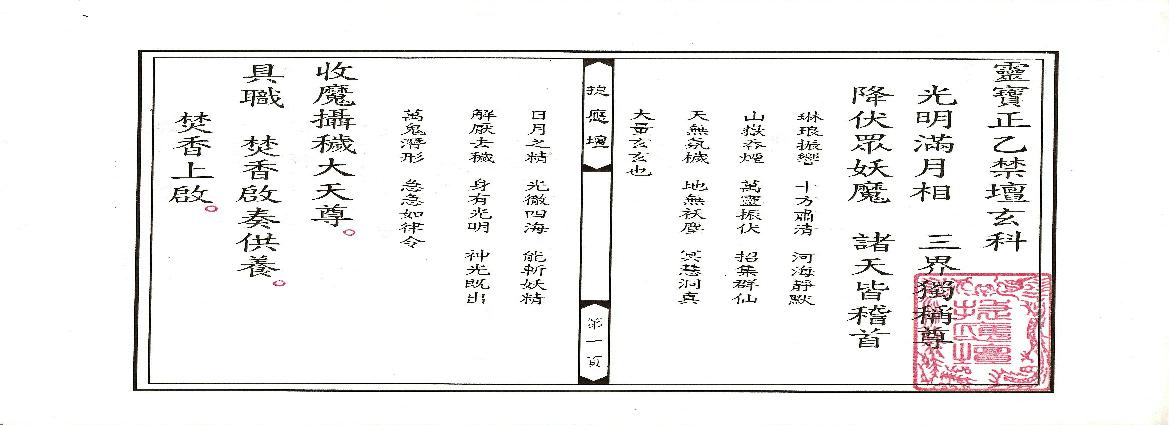 靈寶正乙禁壇玄科
光明滿月相　三界獨稱尊
降伏眾妖魔　諸天皆稽首
琳琅振響　十方肅清　河海靜默
山嶽吞煙　萬靈振伏　招集群仙
天無氛穢　地無祅塵　冥慧洞真
大量玄玄也
應壇
第一頁
日月之精　光徹四海　能斬妖精
解厭去穢　身有光明　神光既出
萬鬼潛形　急急如律令
收魔攝穢大天尊。
具職　焚香啟奏供養。
焚香上啟。